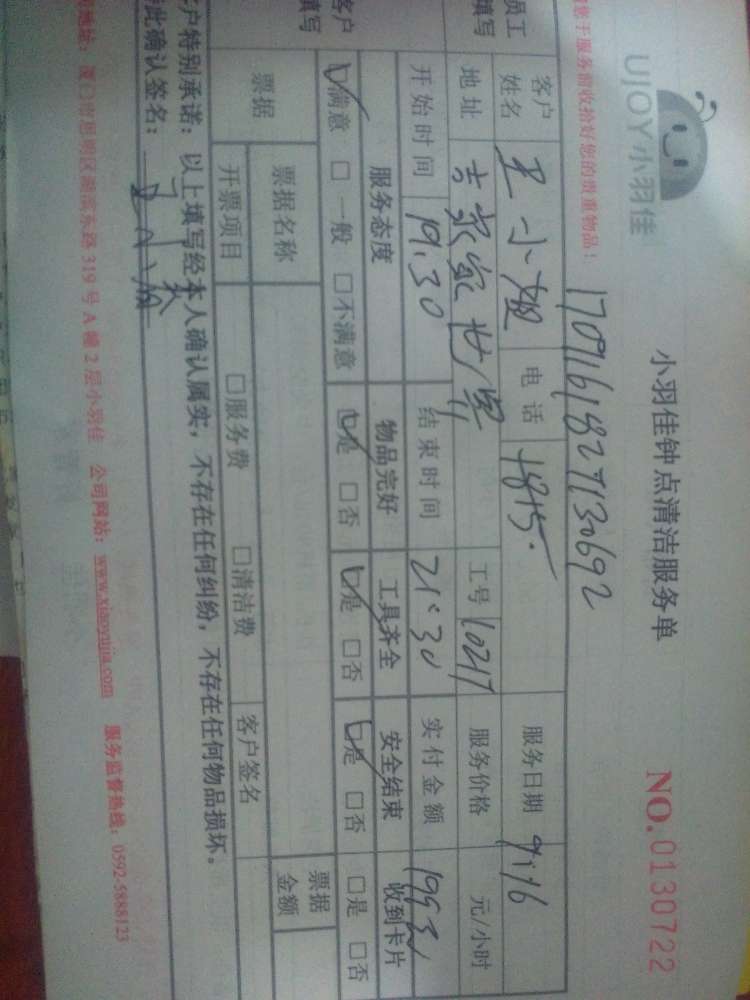 UJOY小羽佳
小羽佳钟点清洁服务单
NO.0130722
您于服务前收拾好您的贵重物品!
17091618271130692
员工填写
客户姓名 王小姐 电话 服务日期
地址 世 工号 10217 服务价格 元/小时
开始时间 19:30 结束时间 21:30 实付金额
客户填写
服务态度 物品完好 工具齐全 安全结束 收到卡片
☑满意 □一般 □不满意 ☑是 □否 ☑是 □否 ☑是 □否 □是 □否
票据 票据名称 票据金额
开票项目 □服务费 □清洁费 客户签名
户特别承诺:以上填写经本人确认属实,不存在任何纠纷,不存在任何物品损坏。
此确认签名:
地址:厦门市思明区湖滨东路319号A幢2层小羽佳 公司网站:www.xiaoyujia.com 服务监督热线:0592-5888123